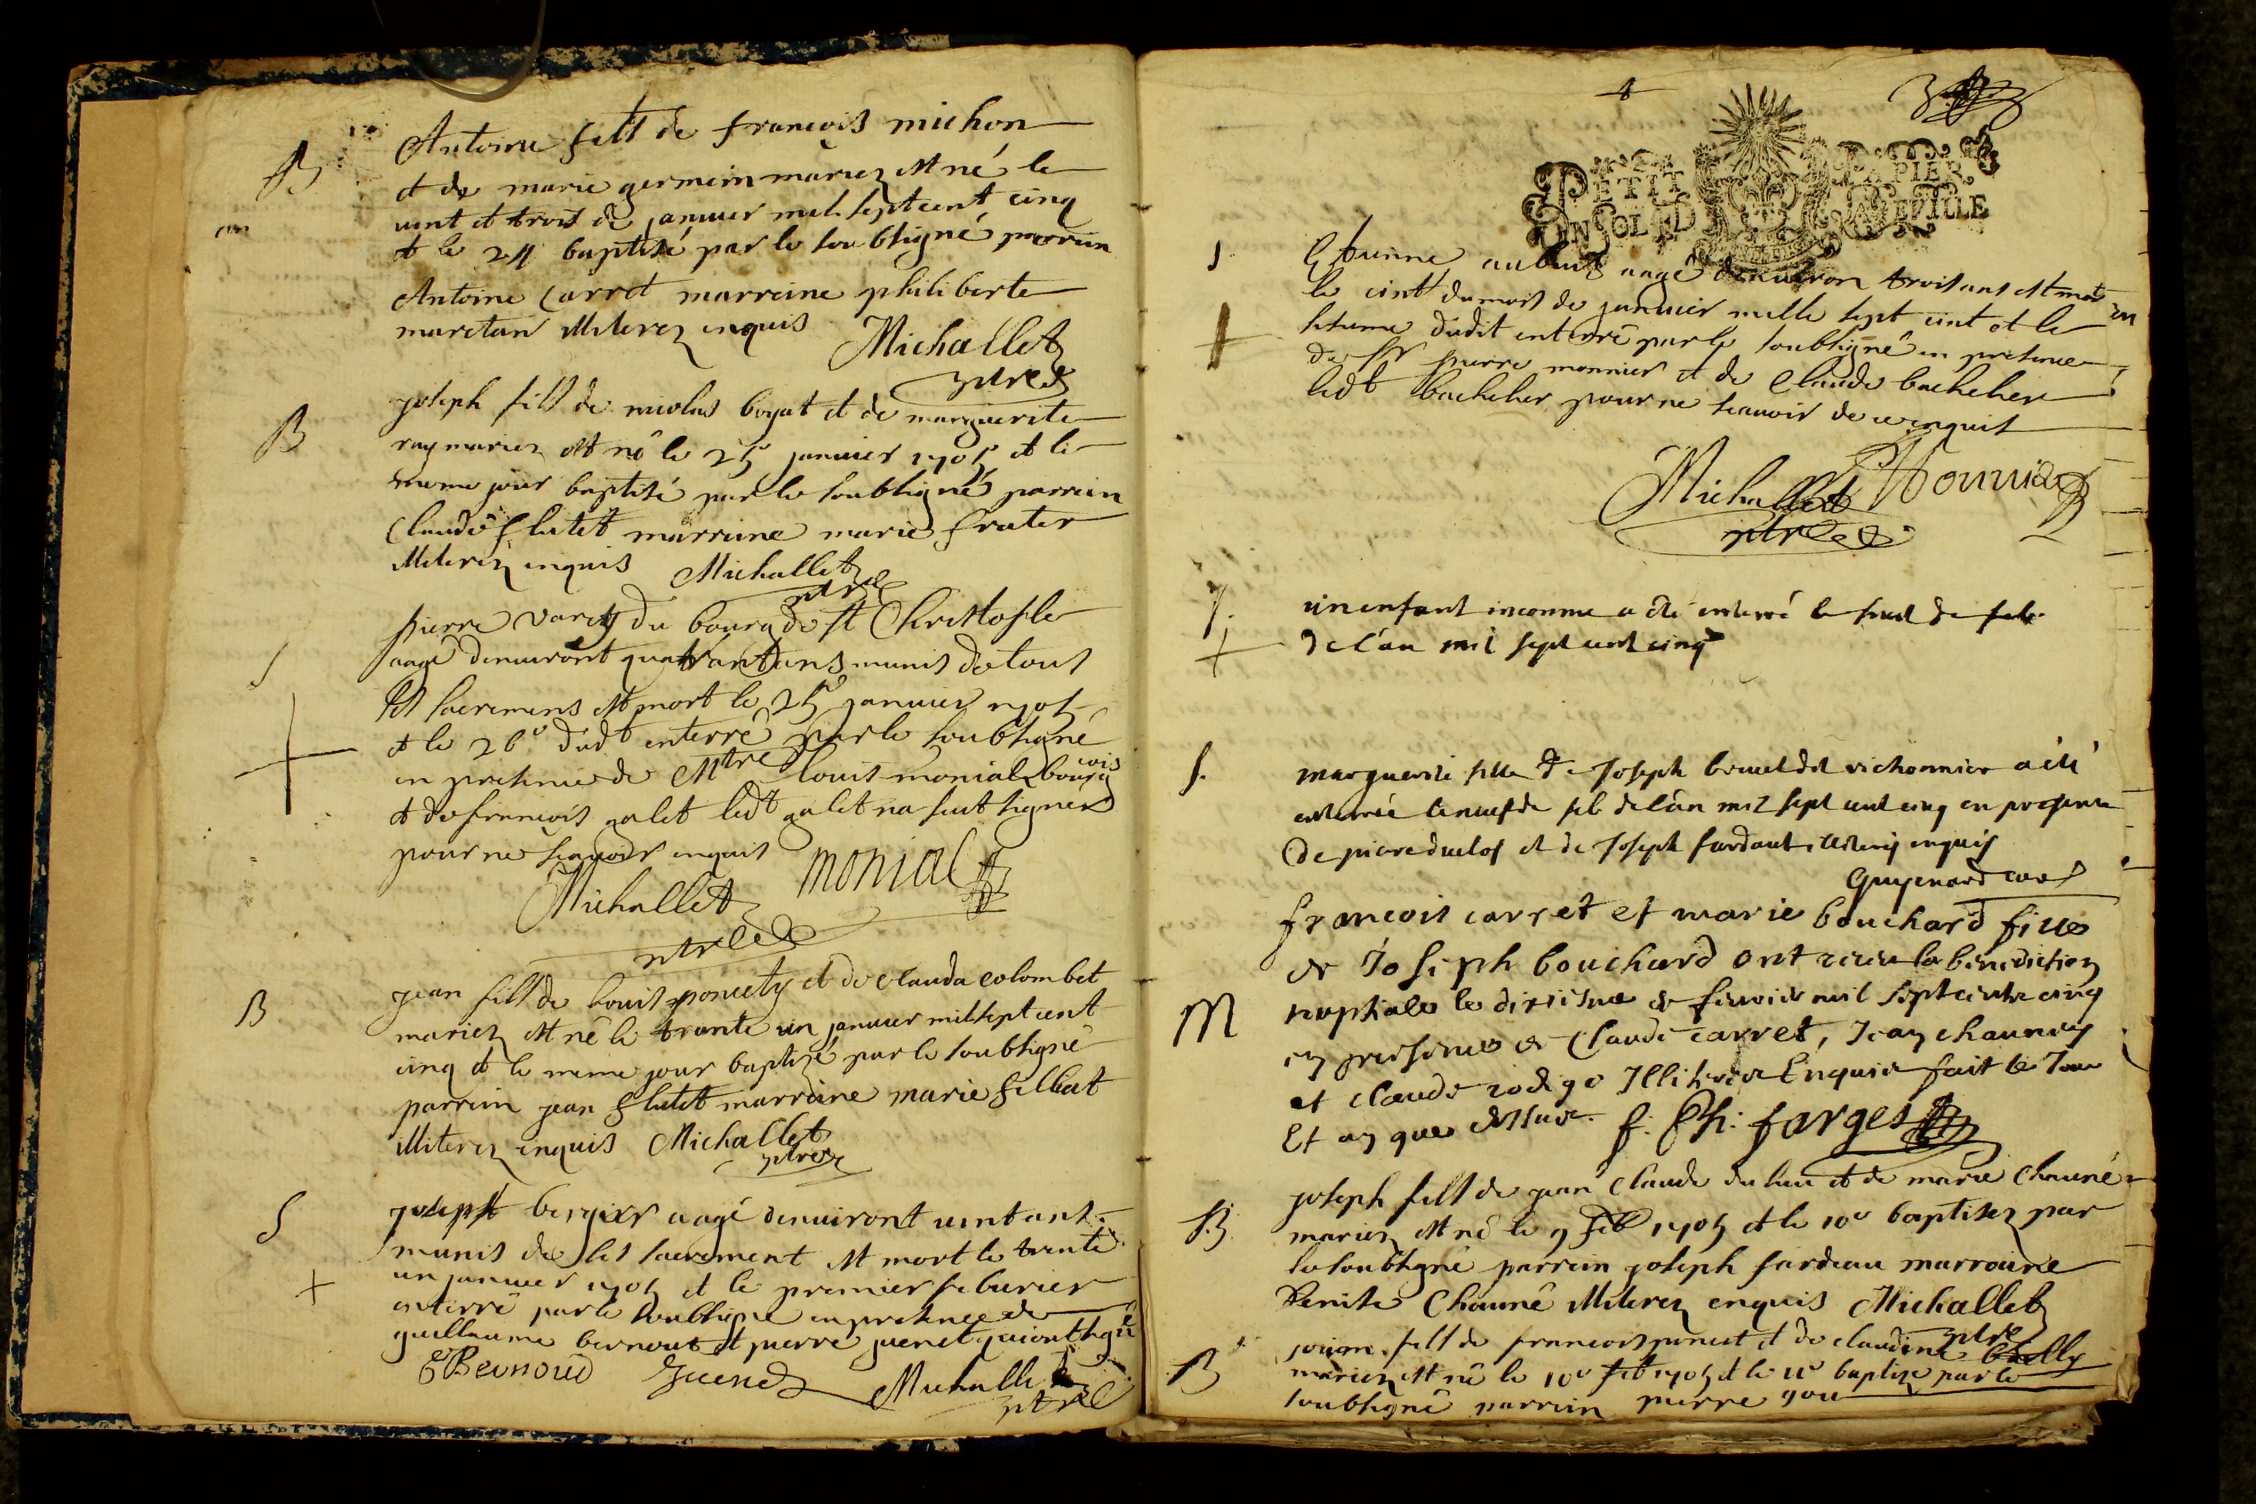 B
Antoine fils de francois michon
et de marie germein mariez est né le
vint et trois de janvier mil sept cent cinq
et le 24 baptisé par le soubsigné parrein
Antoine Carret marreine philiberte
maretan illiterez enquis Michallet
ptre
B
joseph fils de nicolas boyat et de marguerite
ray mariez est né le 25 janvier 1705 et le
meme jour baptisé par le soubsigné parrein
Claude flutet marreine marie frater
illiterez enquis Michallet
ptre
S
pierre varey du bourg de st Christofle
aagé denviront quatrant ans munis de tous
les sacremens est mort le 25e janvier 1705
et le 26e dudt enterré par le soubsigné
en presence de Mtre louis monial bourgeois
et de francois galet ledt galet na sceut signer
pour ne scavoir enquis
Michallet monial
ptre
B
jean fils de louis poncety et de clauda colombet
mariez est né le trante un janvier mil sept cent
cinq et le meme jour baptizé par le soubsigné
parrein jean flutet marreine marie fillat
illiterez enquis Michallet
ptre
S
joseph bergier aagé denviront vint ans
munis de ses sacrement est mort le trente
un janvier 1705 et le premier feburier
enterré par le soubsigné en presence de
guillaume bernout et pierre guenet qui ont signé
Bernoud Guenet Michallet
ptre
PETIT PAPIER
UN SOL LA FEUILLE
S
aagé denviron trois ans est mort en
le cint du mois de janvier mille sept cint et le
sixieme dudit enterré par le soubsigné en presence
de sr pierre monnier et de Claude bachelier
ledt bachelier pour ne scavoir de ce enquis
Michallet Monnier
ptre
un enfant inconnu a été enterré le huit de feb
de l'an mil sept cent cinq
S.
marguerite fille de Joseph brunel dit vichonnier a été
enterrée le neuf de feb de l'an mil sept cent cinq en presence
de pierre duclos et de Joseph fardaut illiterez enquis
Guyenard curé
M
francois carret et marie bouchard fille
de Joseph bouchard ont receu la benediction
nuptiale le dixiesme de fevrier mil sept cents cinq
en presence de Claude carret, Jean chauney
et claude rodige Illiterez Enquis fait le Jour
Et an que dessus. f. Ph: farges
B
joseph fils de jean Claude du lieu et de marie Chauné
mariez est né le 9 feb 1705 et le 10e baptisez par
le soubsigné parrein joseph fardeau marreine
Benite Chauné illiterez enquis Michallet
ptre
B
fils de francois et de claudine
mariez est né le 10e feb 1705 et le 11e baptizé par le
soubsigné parrein pierre